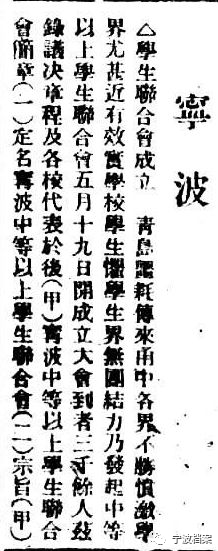 寧波
△學生聯合會成立　青島噩耗傳來甬中各界不勝憤激學
界尤甚近有效實學校學生懼學生界無團結力乃發起中等
以上學生聯合會五月十九日開成立大會到者三千餘人茲
錄議決章程及各校代表於後（甲）寗波中等以上學生聯合
會簡章（一）定名寗波中等以上學生聯合會（二）宗旨（甲）
宁波档案